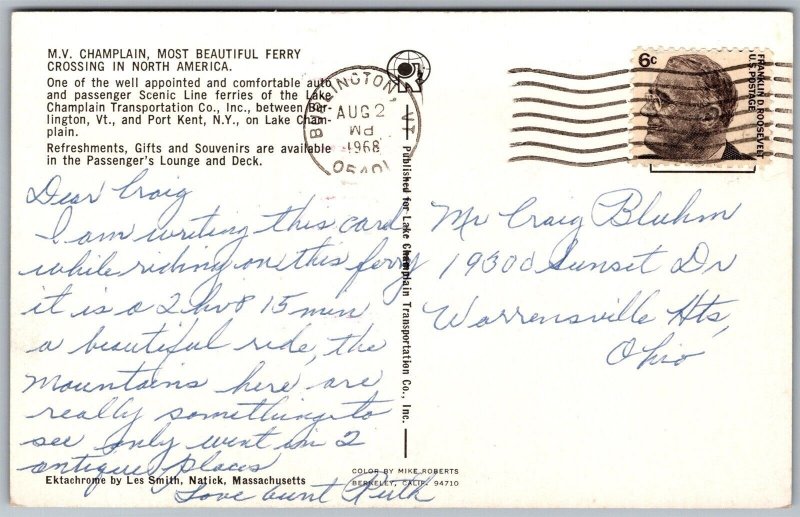 M.V. CHAMPLAIN, MOST BEAUTIFUL FERRY
CROSSING IN NORTH AMERICA.
One of the well appointed and comfortable auto
and passenger Scenic Line ferries of the Lake
Champlain Transportation Co., Inc., between Bur-
lington, Vt., and Port Kent, N.Y., on Lake Cham-
plain.
Refreshments, Gifts and Souvenirs are available
in the Passenger's Lounge and Deck.
Dear Craig
I am writing this card
while riding on this ferry
it is a 2 hr & 15 min
a beautiful ride, the
mountains here are
really something to
see only went in 2
antique places
Love aunt Ruth
Ektachrome by Les Smith, Natick, Massachusetts
BURLINGTON, VT
AUG 2
PM
1968
Published for Lake Champlain Transportation Co., Inc.
COLOR BY MIKE ROBERTS
BERKELEY, CALIF. 94710
6c
FRANKLIN D. ROOSEVELT
U.S. POSTAGE
Mr Craig Bluhm
19300 Sunset Dr
Warrensville Hts,
Ohio